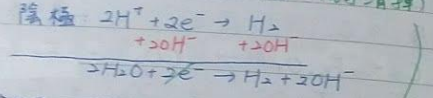 陰極: 2H⁺ + 2e⁻ → H₂
+2OH⁻ +2OH⁻
2H₂O + 2e⁻ → H₂ + 2OH⁻